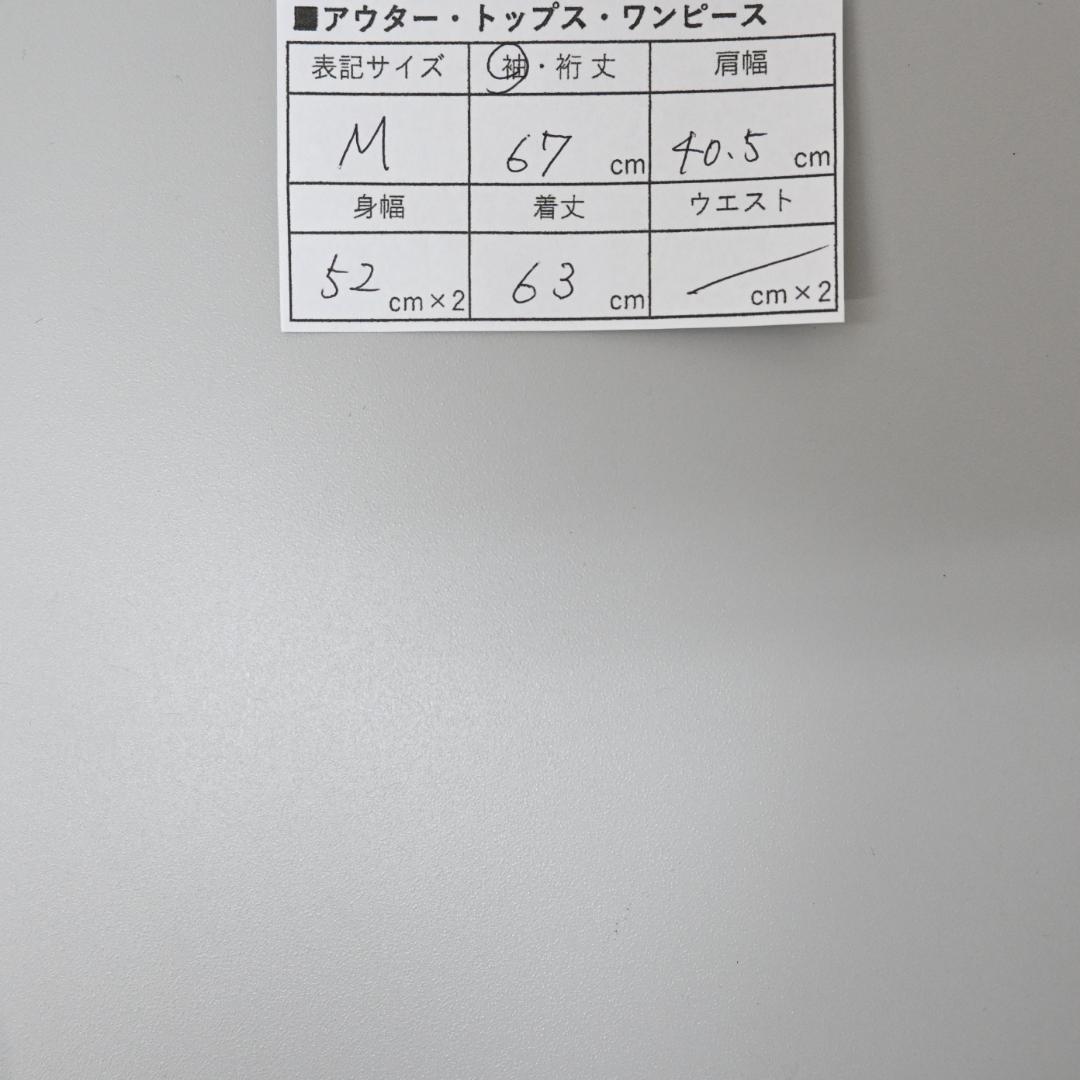 ■アウター・トップス・ワンピース
表記サイズ 袖・裄丈 肩幅
M 67 cm 40.5 cm
身幅 着丈 ウエスト
52 cm×2 63 cm cm×2